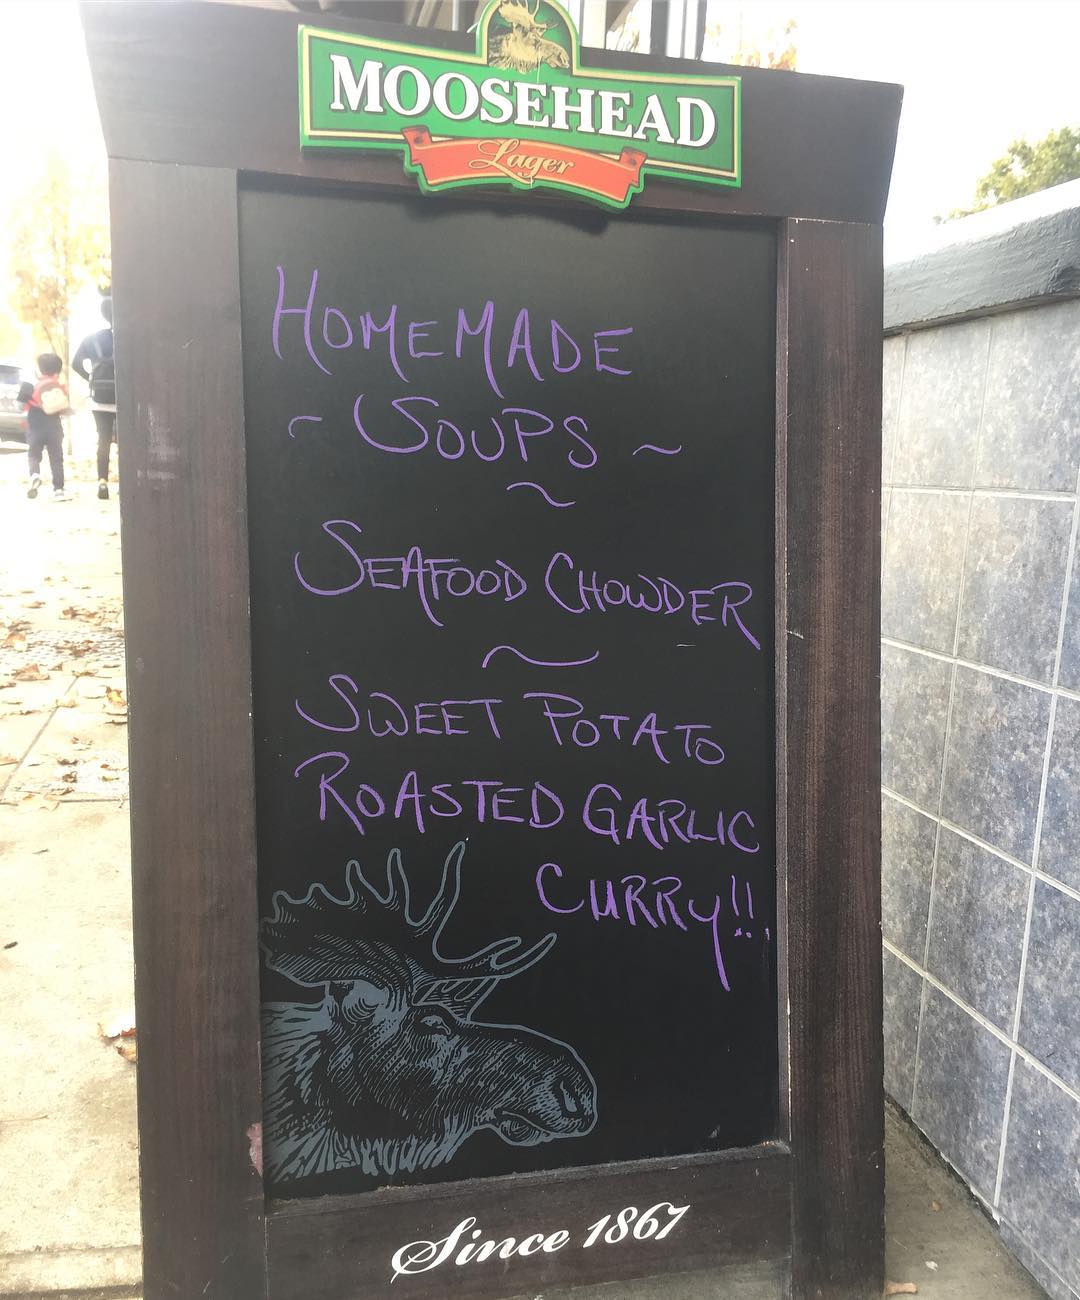 MOOSEHEAD
Lager
HOMEMADE
~ SOUPS ~
~
SEAFOOD CHOWDER
~
SWEET POTATO
ROASTED GARLIC
CURRY!!
Since 1867